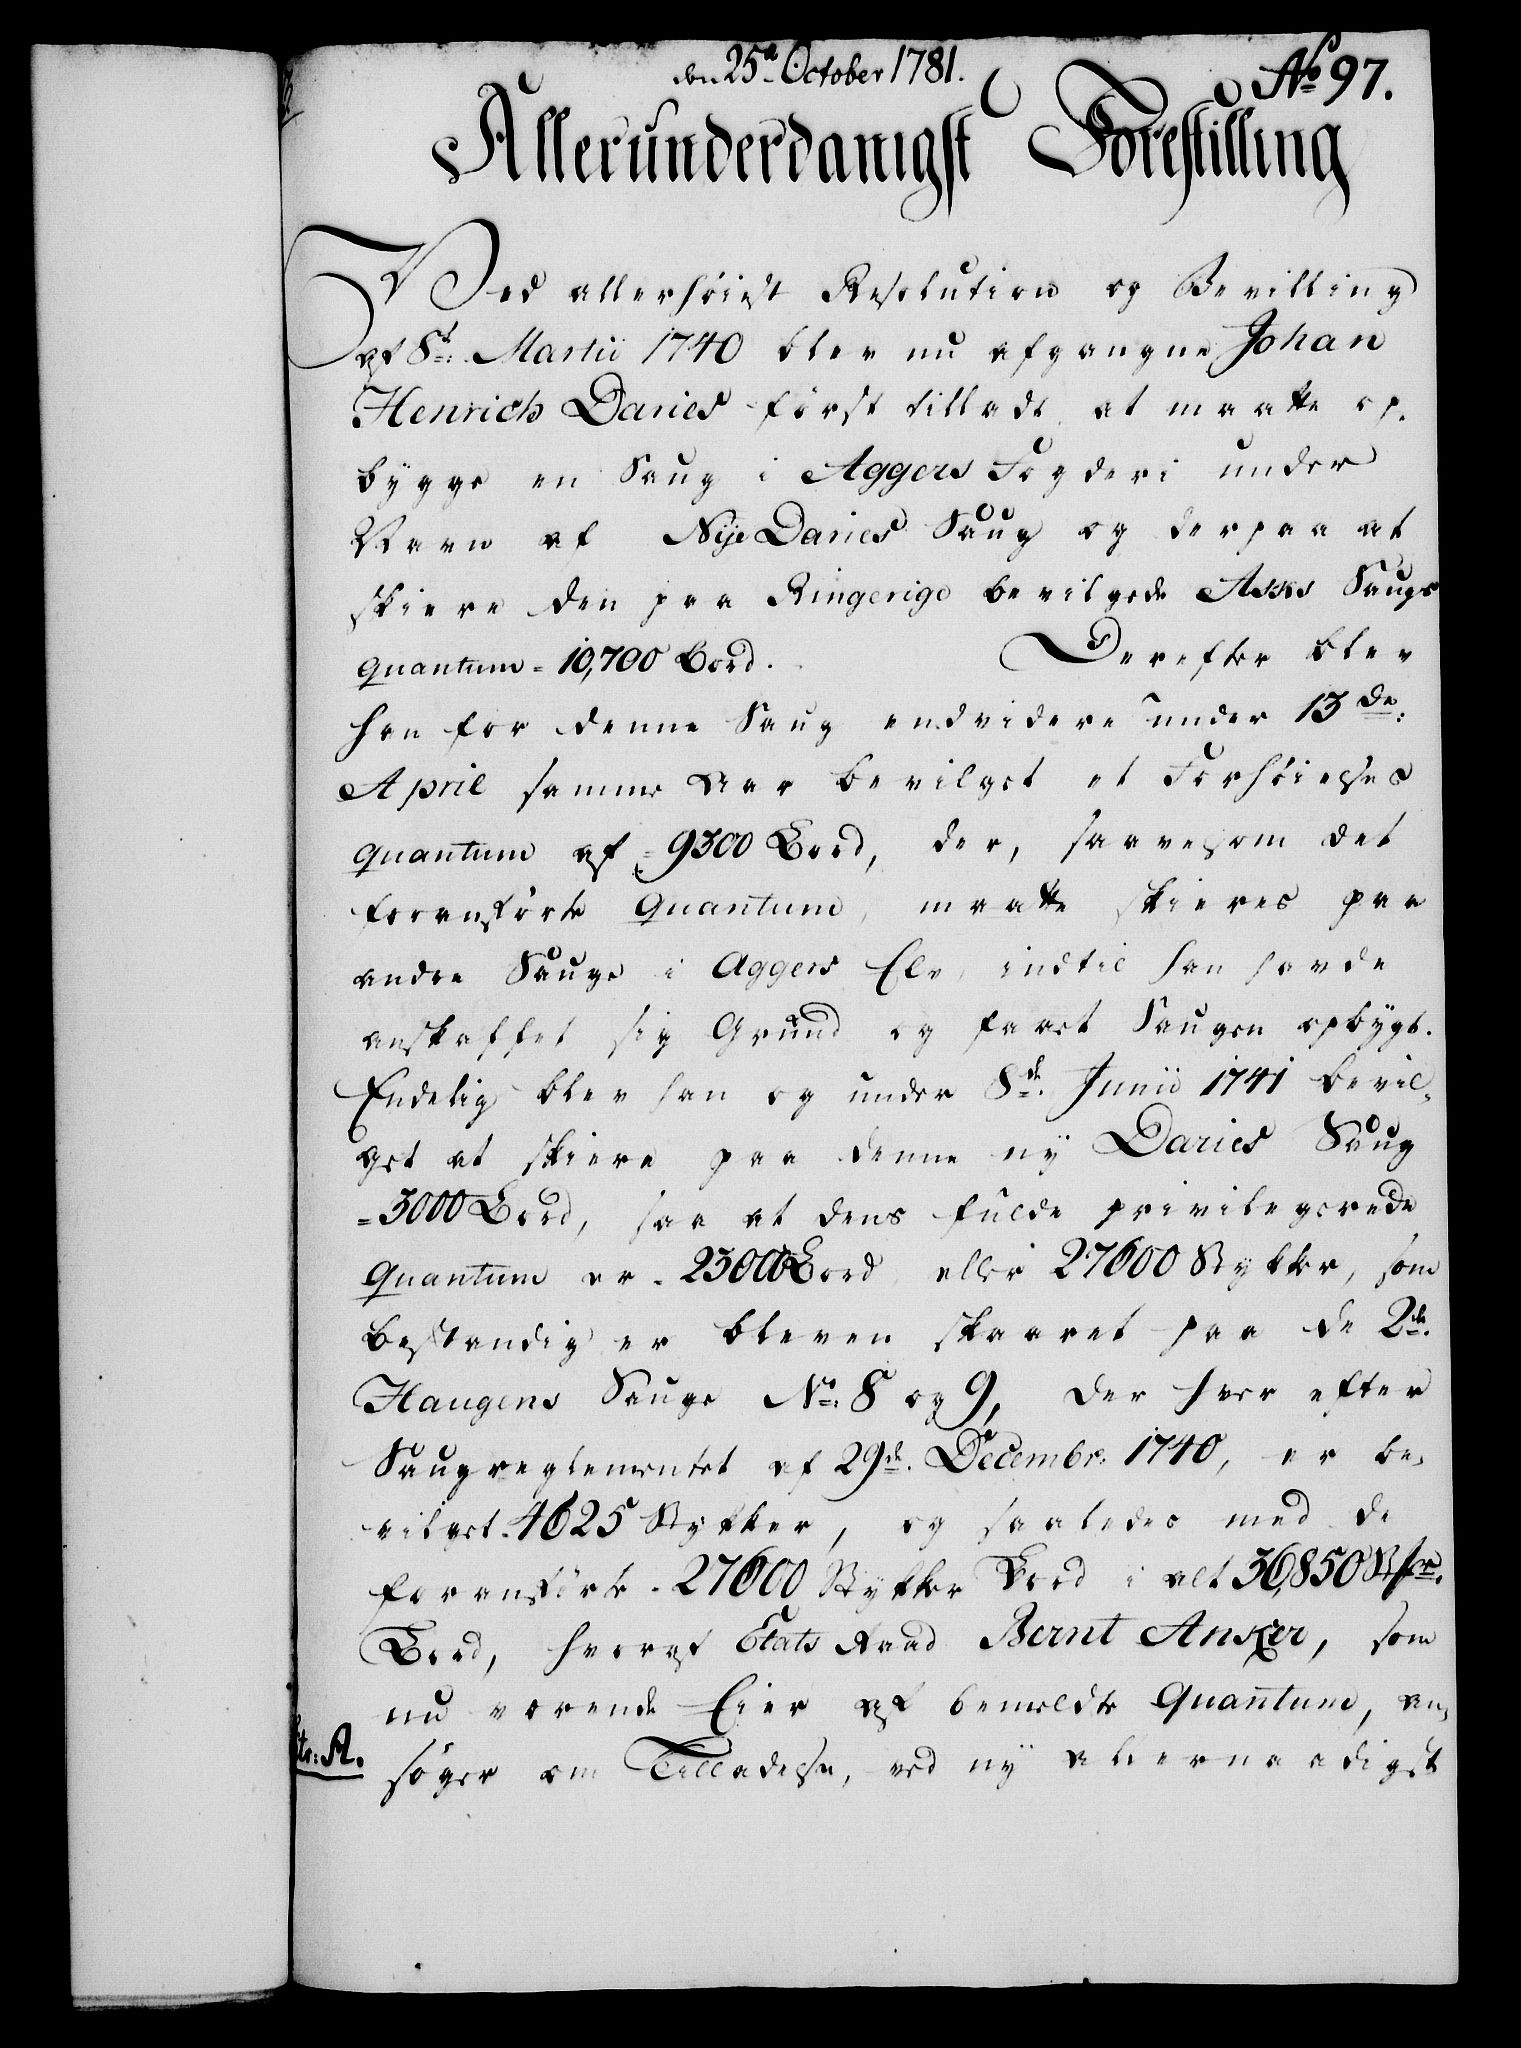 den 25de October 1781.
No 97.
Allerunderdanigst Forestilling
Ved allerhöiest Resolution og Bevilling
af 8de Martii 1740 blev nu afgangne Johan
Henrich Daries först tilladt at maatte op-
bygge en Saug i Aggers Fogderi under
Navn af Nije Daries Saug og derpaa at
skiere den paa Ringerige bevilgede Asks Saugs
quantum - 10,700 Bord. Derefter blev
han for denne Saug endvidere under 13de
April samme Aar bevilget et Forhöielses
quantum af = 9300 Bord, der, saavelsom det
foranförte Quantum, maatte skieres paa
andre Sauge i Aggers Elv, indtil han havde
anskaffet sig Grund og faaet Saugen opbygt.
Endelig blev han og under 8de Junii 1741 bevil-
get at skiere paa denne ny Daries Saug
= 3000 Bord, saa at dens fulde privilegerede
Quantum er - 23000 Bord eller 27600 Stykker, som
bestandig er bleven skaaret paa de 2de
Haugens Sauge No: 8 og 9, der hver efter
Saugreglementet af 29de Decembr: 1740, er be-
vilget - 4625 Stykker, og saaledes med de
foranförte - 27600 Stykker Bord i alt 36,850 Stkr.
Bord, hvoraf Etats Raad Bernt Anker, som
nu værende Eier af bemeldte Quantum, an-
Ltr: A.
söger om Tilladelse, ved ny allernaadigst